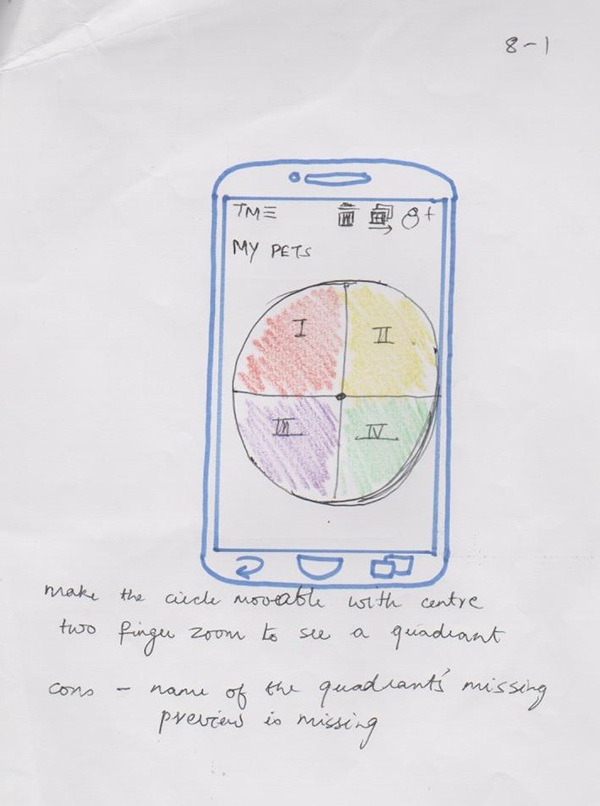 8-1
TM
MY PETS
I
II
III
IV
make the circle moveable with centre
two finger zoom to see a quadrant
cons - name of the quadrant's missing
preview is missing